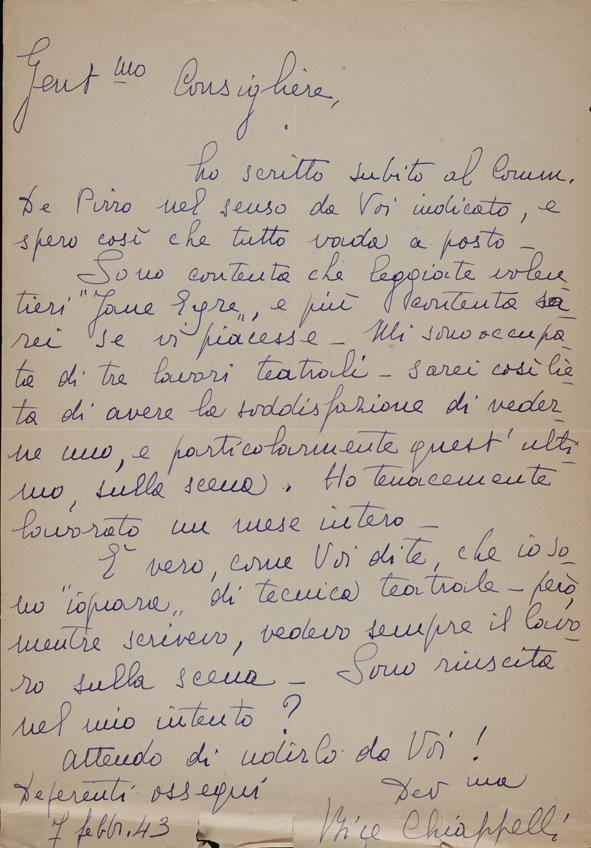 Gent mo Consigliere,
ho scritto subito al Comm.
De Pirro nel senso da Voi indicato, e
spero così che tutto vada a posto –
Sono contenta che leggiate volen
tieri "Jane Eyre„, e più contenta sa
rei se vi piacesse – Mi sono occupa
ta di tre lavori teatrali – sarei così lie
ta di avere la soddisfazione di veder
ne uno, e particolarmente quest' ulti
mo, sulla scena. Ho tenacemente
lavorato un mese intero –
È vero, come Voi dite, che io so
no "ignara„ di tecnica teatrale – però,
mentre scrivevo, vedevo sempre il lavo
ro sulla scena – Sono riuscita
nel mio intento ?
Attendo di udirlo da Voi !
Deferenti ossequi Dev ma
7 febbr. 43 Bice Chiappelli